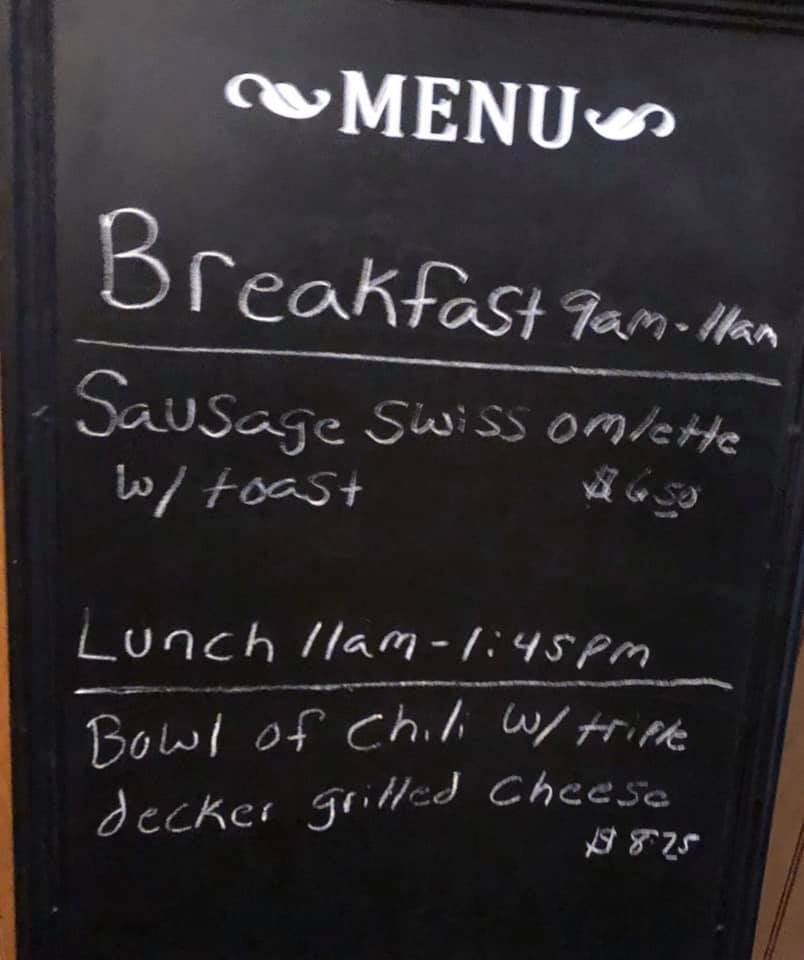 MENU
Breakfast 9am-11am
Sausage Swiss omlette
w/ toast $6.50
Lunch 11am-1:45pm
Bowl of chili w/ triple
decker grilled cheese
$8.25